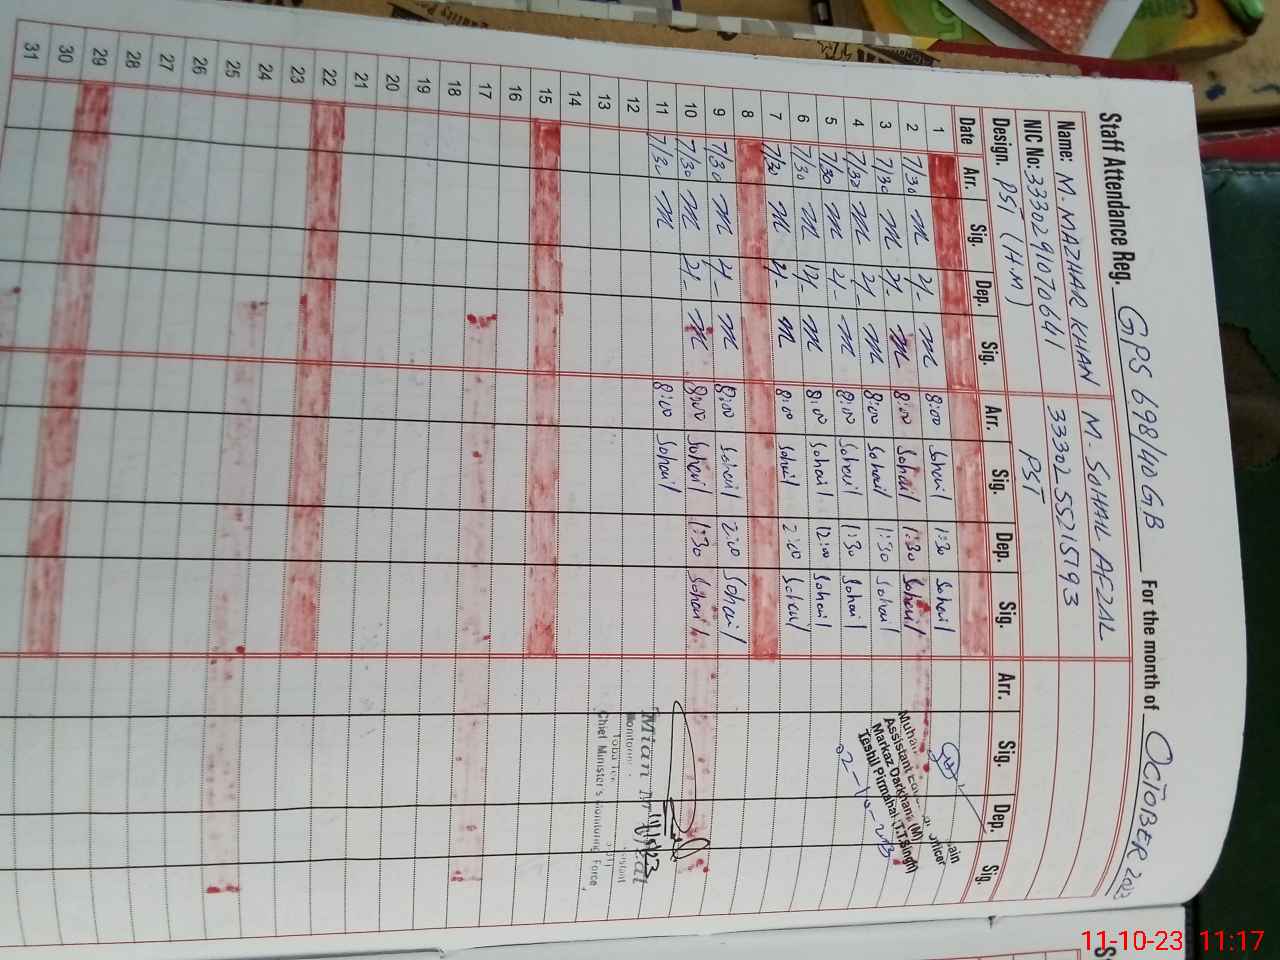 Staff Attendance Reg. GPS 698/40 GB For the month of OCTOBER 2023
Name: M. MAZHAR KHAN M. SOHAIL AFZAL
NIC No: 3330291070641 3330255215793
Design. PST (H.M) PST
Date Arr. Sig. Dep. Sig. Arr. Sig. Dep. Sig. Arr. Sig. Dep. Sig.
1
2 7/30 M 2/- M 8:00 Sohail 1:30 Sohail
3 7/30 M 2/- M 8:00 Sohail 1:30 Sohail
4 7/30 M 2/- M 8:00 Sohail 1:30 Sohail
5 7/30 M 2/- M 8:00 Sohail 1:30 Sohail
6 7/30 M 12/- M 8:00 Sohail 12:00 Sohail
7 7/30 M 2/- M 8:00 Sohail 2:00 Sohail
8
9 7/30 M 2/- M 8:00 Sohail 2:00 Sohail
10 7/30 M 2/- M 8:00 Sohail 1:30 Sohail
11 7/30 M 8:00 Sohail
12
13
14
15
16
17
18
19
20
21
22
23
24
25
26
27
28
29
30
31
Assistant Officer
Markaz Darkhana (M)
Teshil Pirmahal (T.T.Singh)
02-10-23
Mian
Chief Minister's Monitoring Force
11-10-23 11:17